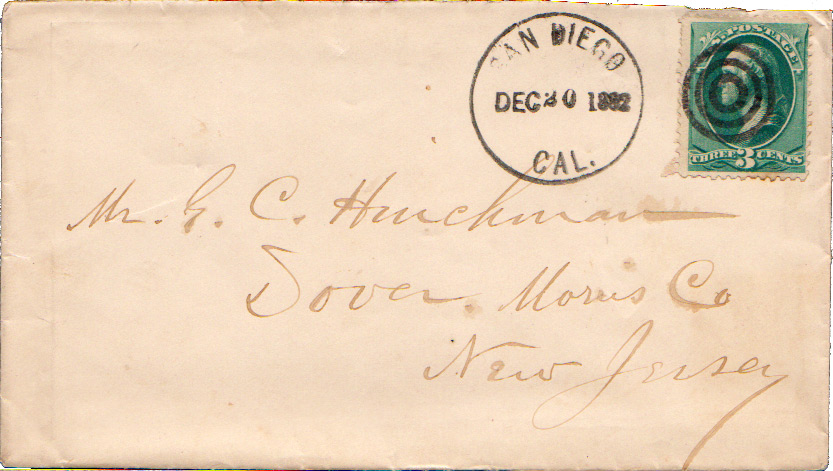 SAN DIEGO
DEC 30 1882
CAL.
U.S. POSTAGE
THREE 3 CENTS
Mr. G. C. Hinchman
Dover. Morris Co
New Jersey